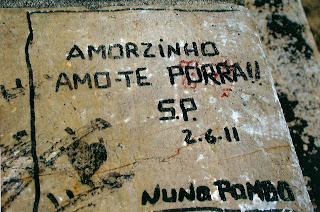 AMORZINHO
AMO-TE PORRA!!
S.P.
2.6.11
NUNO POMBO